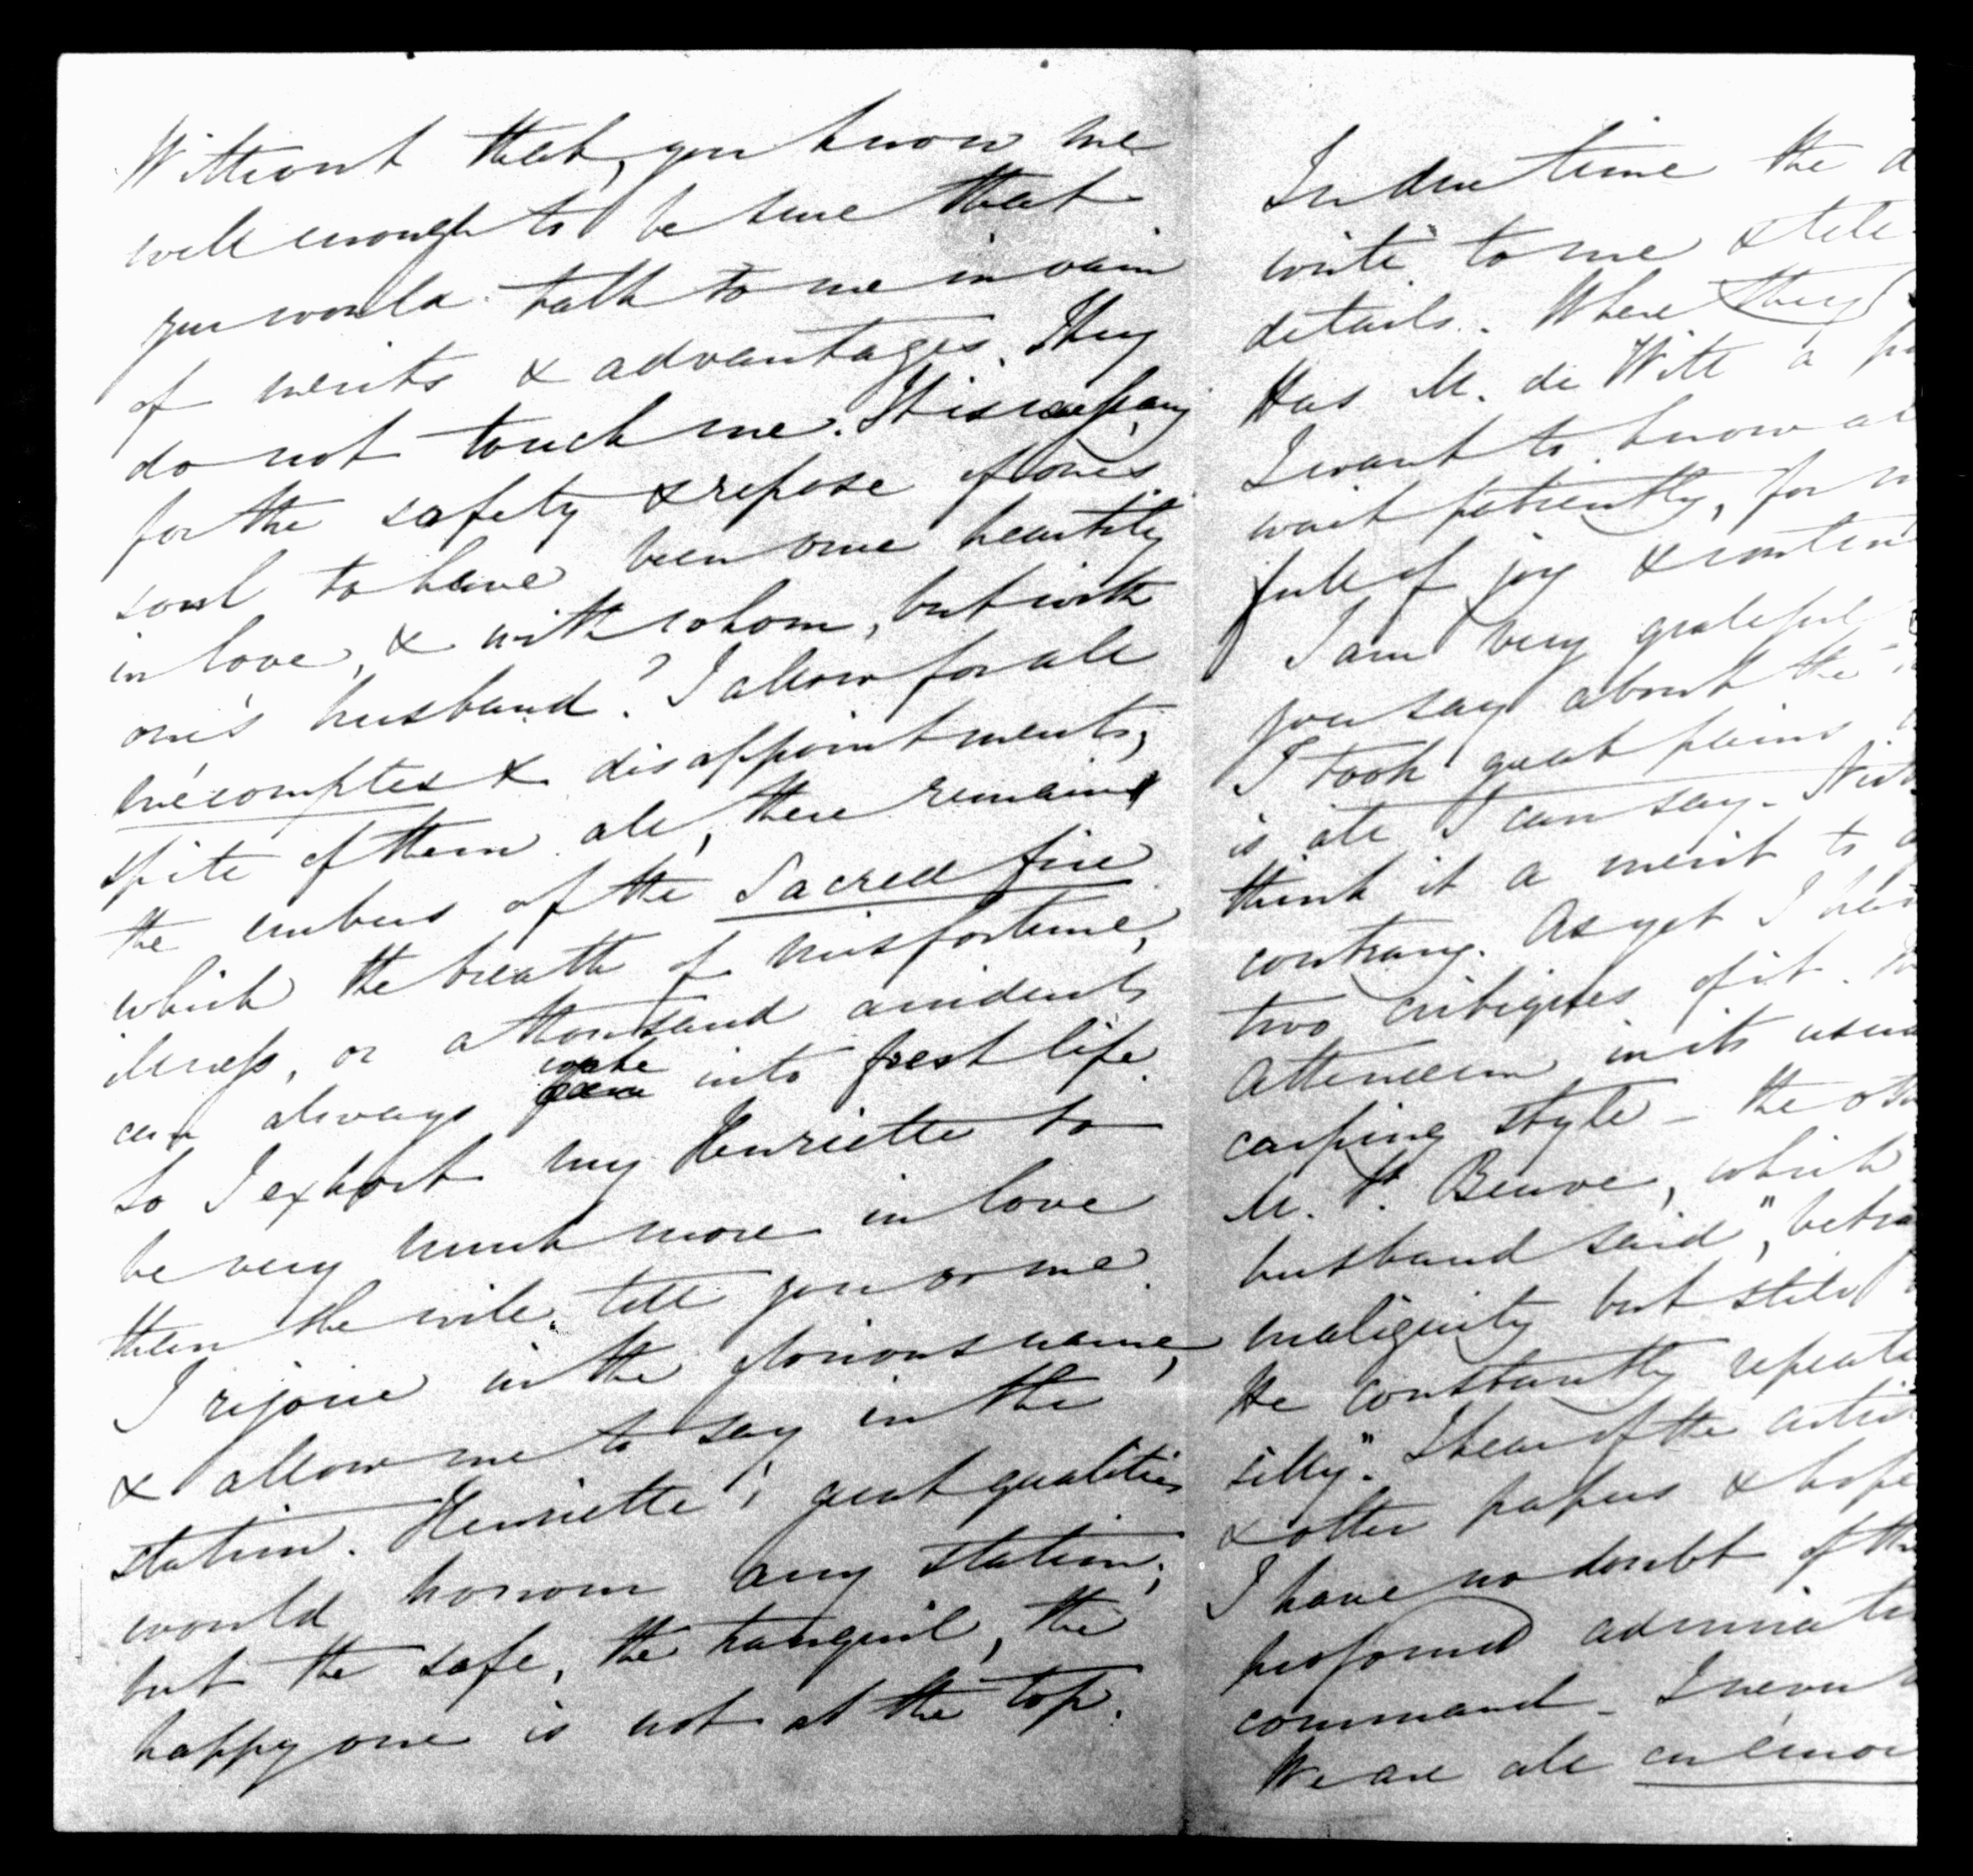 Without that, you know me
well enough to be sure that
you would talk to me in vain
of merits & advantages. They
do not touch me. It is necessary
for the safety & repose of one's
soul to have been once heartily
in love, & with whom, but with
one's husband? I allow for all
mécomptes & disappointments;
spite of them all, there remains
the embers of the Sacred fire
which the breath of misfortune,
illness, or a thousand accidents
can always wake into fresh life.
So I exhort my Henriette to
be very much more in love
than she will tell you or me.
I rejoice in the glorious name,
& allow me to say in the
station. Henriette's great qualities
would honour any station;
but the safe, the tranquil, the
happy one is not at the top.
In due time the d
write to me & tell
details. Where they
Has M. de Witt a
I want to know al
wait patiently, for
full of joy & conten
I am very grateful
you say about the
I took great pains
is all I can say.
think it a merit to
contrary. As yet I
two critiques of it.
Atheneum in its usua
carping style - the oth
M. St. Beuve, which
husband said, "betra
malignity but still
He constantly repeate
silly". I hear of the
& other papers & hope
I have no doubt of th
profound admirati
command - I never
We are all